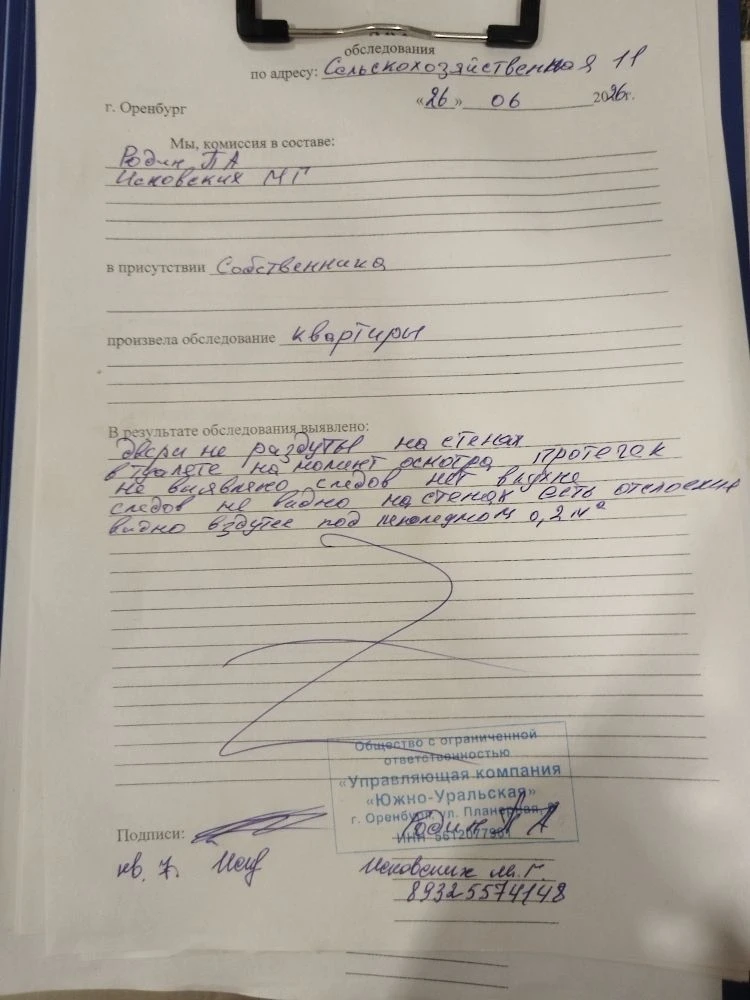 обследования
по адресу: Сельскохозяйственная 11
г. Оренбург
«26» 06 2026г.
Мы, комиссия в составе:
Родин ПА
Исковских МГ
в присутствии Собственника
произвела обследование квартиры
В результате обследования выявлено:
двери не раздуты на стенах
в туалете на момент осмотра протечек
не выявлено следов нет в кухне
следов не видно на стенах есть отслоения
видно вздутее под 0,2 м²
Общество с ограниченной
ответственностью
«Управляющая компания
«Южно-Уральская»
г. Оренбург, ул. Планерная,
ИНН 5612077901
Подписи: Родин П А
кв. 7. Исковских М.Г.
89325574148